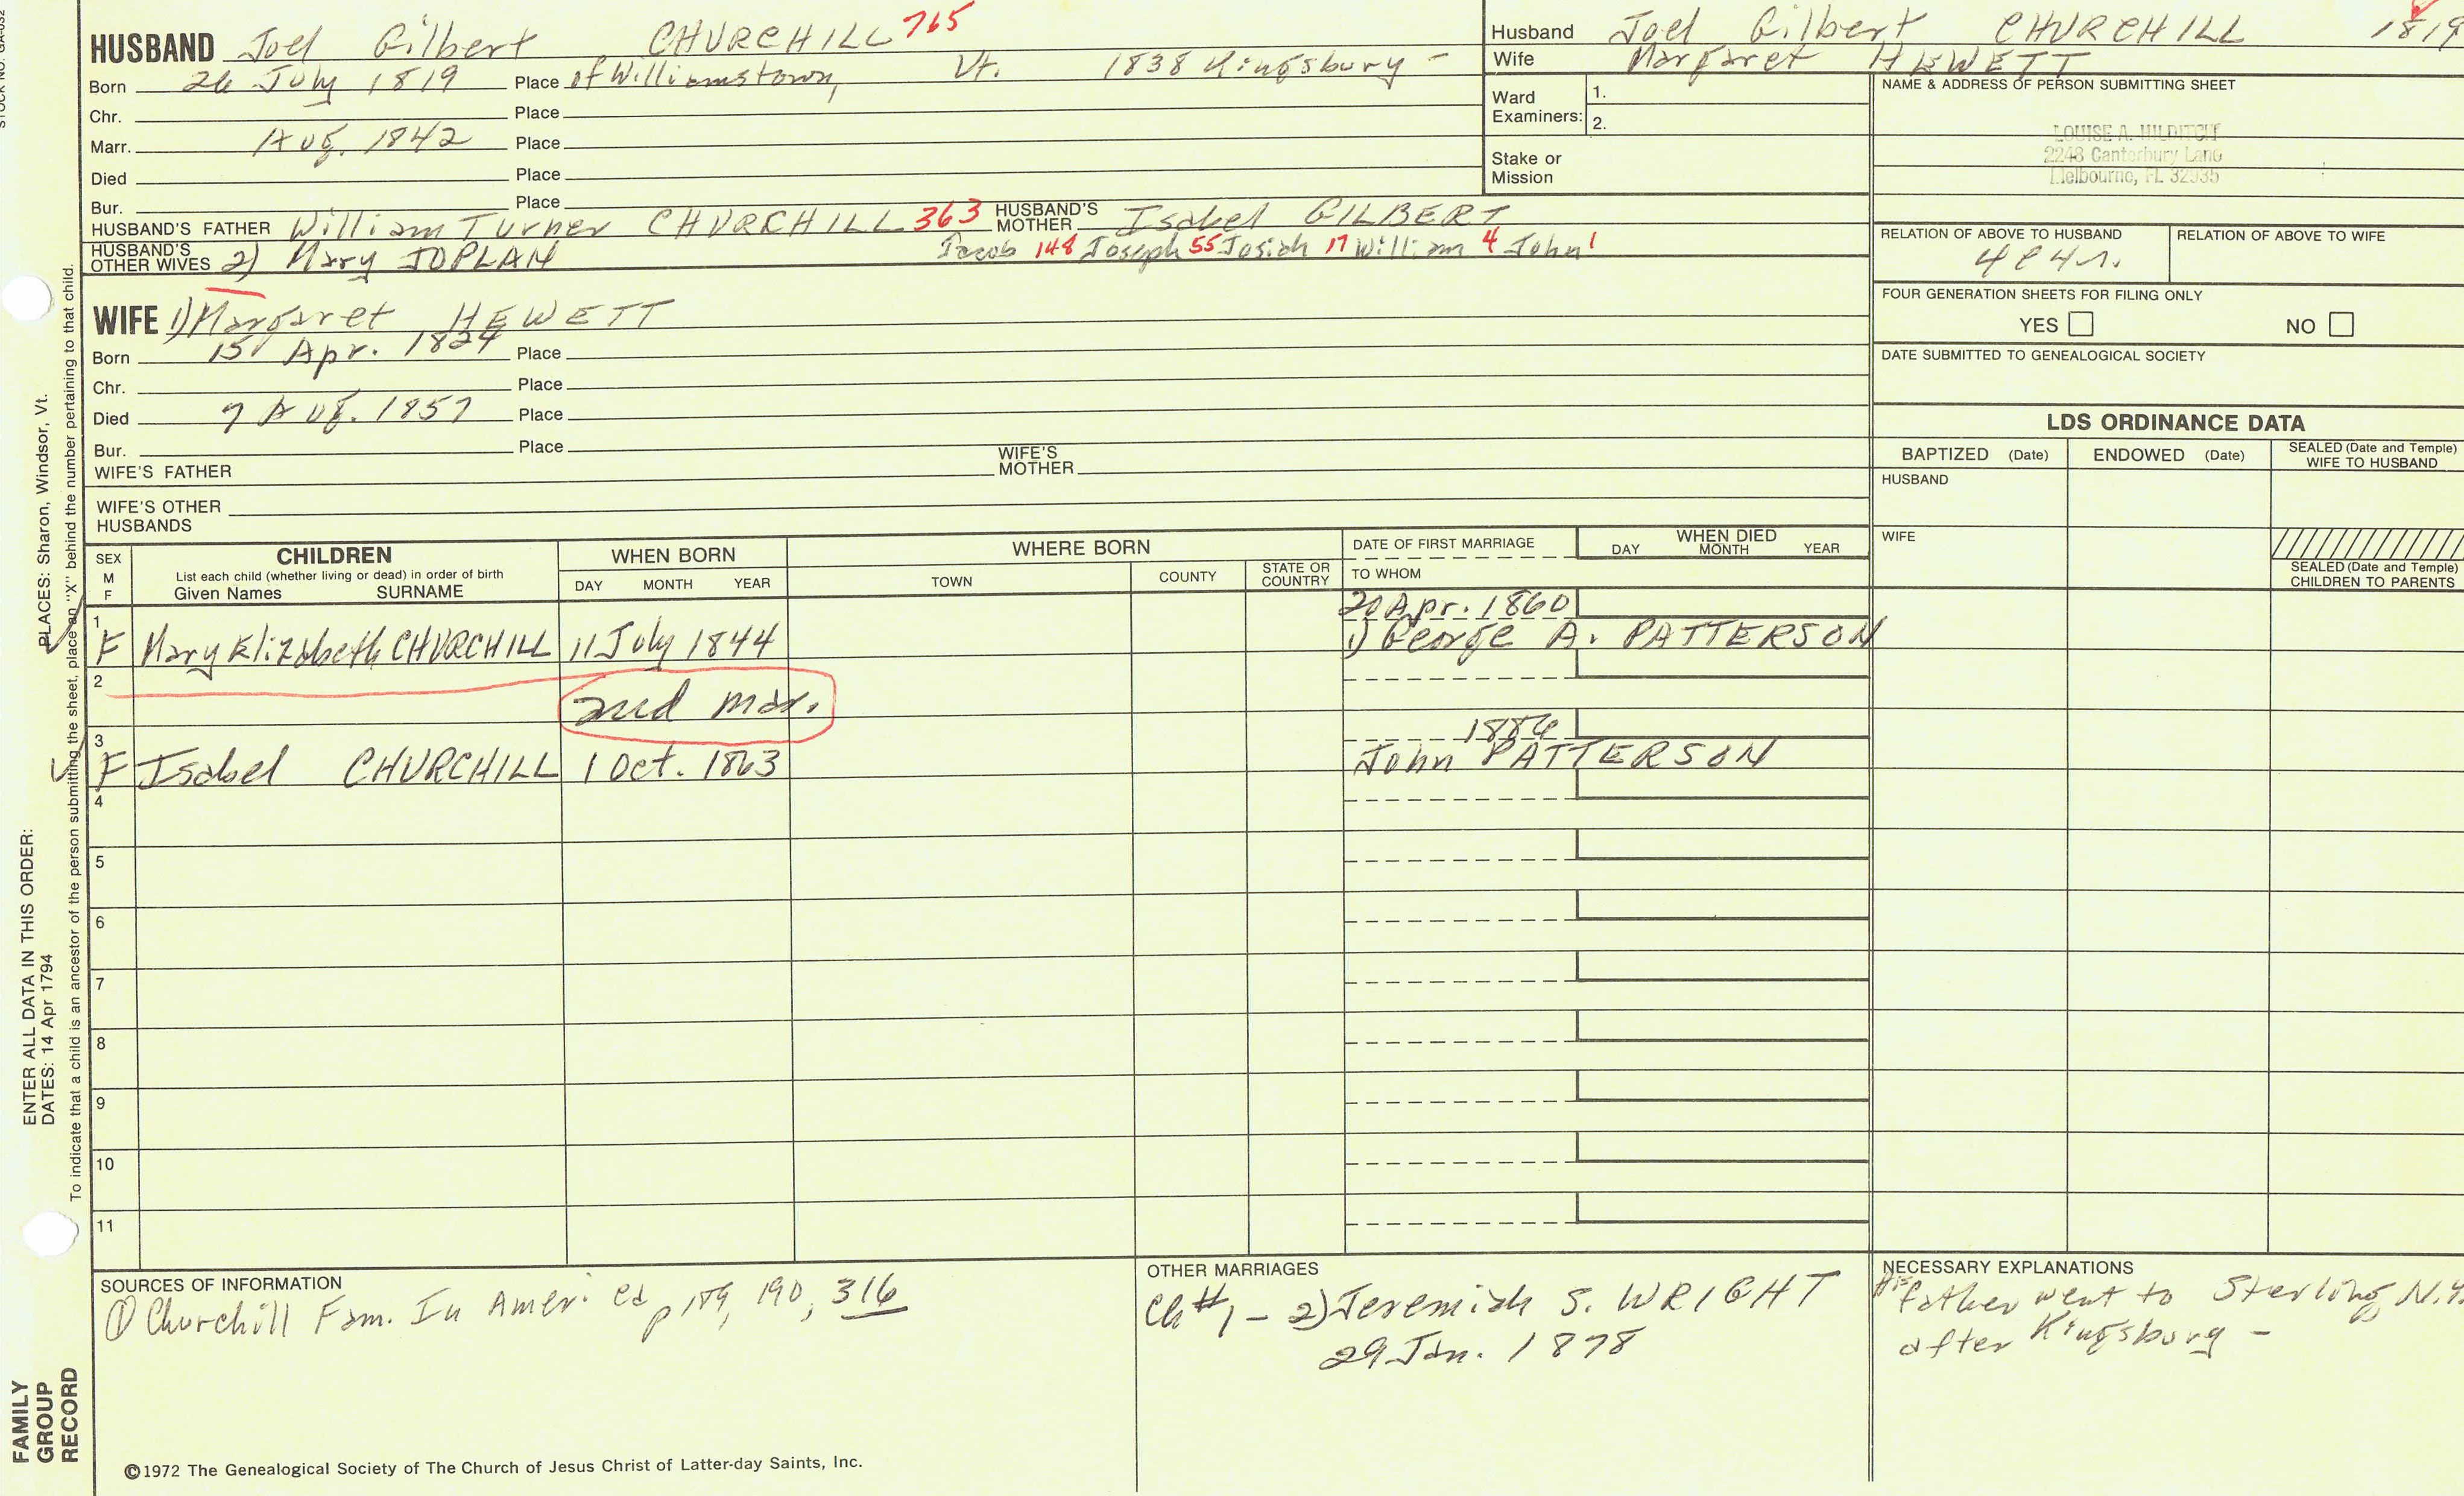 STOCK NO. GA-032
HUSBAND Joel Gilbert CHURCHILL 765
Born 26 July 1819 Place of Williamstown, Vt. 1838 Kingsbury -
Chr. Place
Marr. Aug. 1842 Place
Died Place
Bur. Place
HUSBAND'S FATHER William Turner CHURCHILL 363 HUSBAND'S MOTHER Isabel GILBERT
HUSBAND'S OTHER WIVES 2) Mary JOPLAN Jacob 148 Joseph 55 Josiah 17 William 4 John 1
WIFE 1) Margaret HEWETT
Born 15 Apr. 1824 Place
Chr. Place
Died 7 Aug. 1857 Place
Bur. Place
WIFE'S FATHER WIFE'S MOTHER
WIFE'S OTHER HUSBANDS
Husband Joel Gilbert CHURCHILL 1819
Wife Margaret HEWETT
Ward Examiners: 1.
2.
Stake or Mission
NAME & ADDRESS OF PERSON SUBMITTING SHEET
LOUISE A. HILDITCH
2248 Canterbury Lane
Melbourne, FL 32935
RELATION OF ABOVE TO HUSBAND RELATION OF ABOVE TO WIFE
FOUR GENERATION SHEETS FOR FILING ONLY
YES NO
DATE SUBMITTED TO GENEALOGICAL SOCIETY
LDS ORDINANCE DATA
BAPTIZED (Date) ENDOWED (Date) SEALED (Date and Temple) WIFE TO HUSBAND
HUSBAND
WIFE
SEALED (Date and Temple) CHILDREN TO PARENTS
SEX M F CHILDREN WHEN BORN WHERE BORN DATE OF FIRST MARRIAGE WHEN DIED
List each child (whether living or dead) in order of birth DAY MONTH YEAR
Given Names SURNAME DAY MONTH YEAR TOWN COUNTY STATE OR COUNTRY TO WHOM
20 Apr. 1860
1 F Mary Elizabeth CHURCHILL 11 July 1844 1) George A. PATTERSON
2 2nd mar.
1886
3 F Isabel CHURCHILL 1 Oct. 1863 John PATTERSON
4
5
6
7
8
9
10
11
SOURCES OF INFORMATION
① Churchill Fam. In America p 189, 190, 316
OTHER MARRIAGES
Ch #1 - 2) Jeremiah S. WRIGHT
29 Jan. 1878
NECESSARY EXPLANATIONS
His father went to Sterling, N.Y.
after Kingsbury -
©1972 The Genealogical Society of The Church of Jesus Christ of Latter-day Saints, Inc.
FAMILY
GROUP
RECORD
ENTER ALL DATA IN THIS ORDER:
DATES: 14 Apr 1794 PLACES: Sharon, Windsor, Vt.
To indicate that a child is an ancestor of the person submitting the sheet, place an "X" behind the number pertaining to that child.